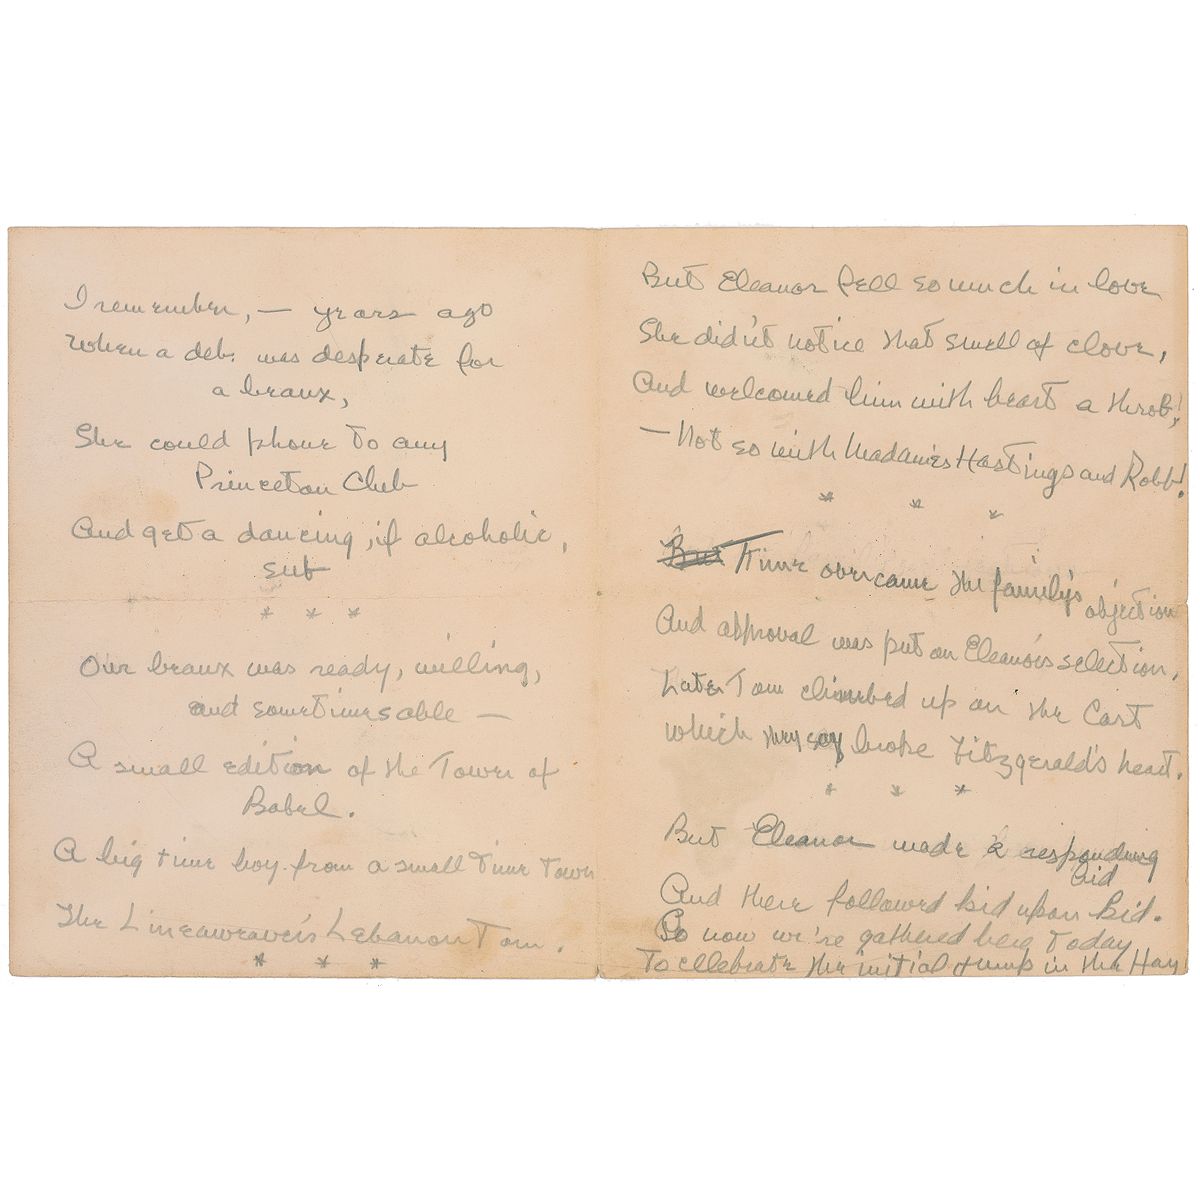 I remember, — years ago
When a deb. was desperate for
a beaux,
She could phone to any
Princeton Club
And get a dancing, if alcoholic,
sub
* * *
Our beaux was ready, willing,
and sometimes able —
A small edition of the Tower of
Babel.
A big time boy from a small time town
The Lineaweaver's Lebanon Tom.
* * *
But Eleanor fell so much in love
She did'nt notice that smell of clove,
And welcomed him with heart a throb!
— Not so with Madames Hastings and Robb!
* * *
But Time overcame the family's objection
And approval was put on Eleanor's selection,
Later Tom climbed up on the Cart
which they say broke Fitzgerald's heart.
* * *
But Eleanor made a responding
bid
And there followed bid upon bid.
So now we're gathered here today
To cellebrate the initial jump in the Hay